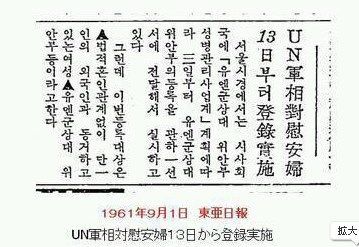 UN軍相對慰安婦
13日부터 登錄實施
서울시경에서는 시사회
국에 「유엔군상대 위안부
성병관리사업계」계획에따
라 一三일부터 유엔군상대
위안부의등록을 관하一선
서에 전달해서 실시하고
있다
그런데 이번등록대상은
▲법적혼인관계없이 만一
인의 외국인과 동거하고
있는여성▲유엔군상대 위
안부등이라고한다
1961年9月1日 東亜日報
UN軍相対慰安婦13日から登録実施
拡大